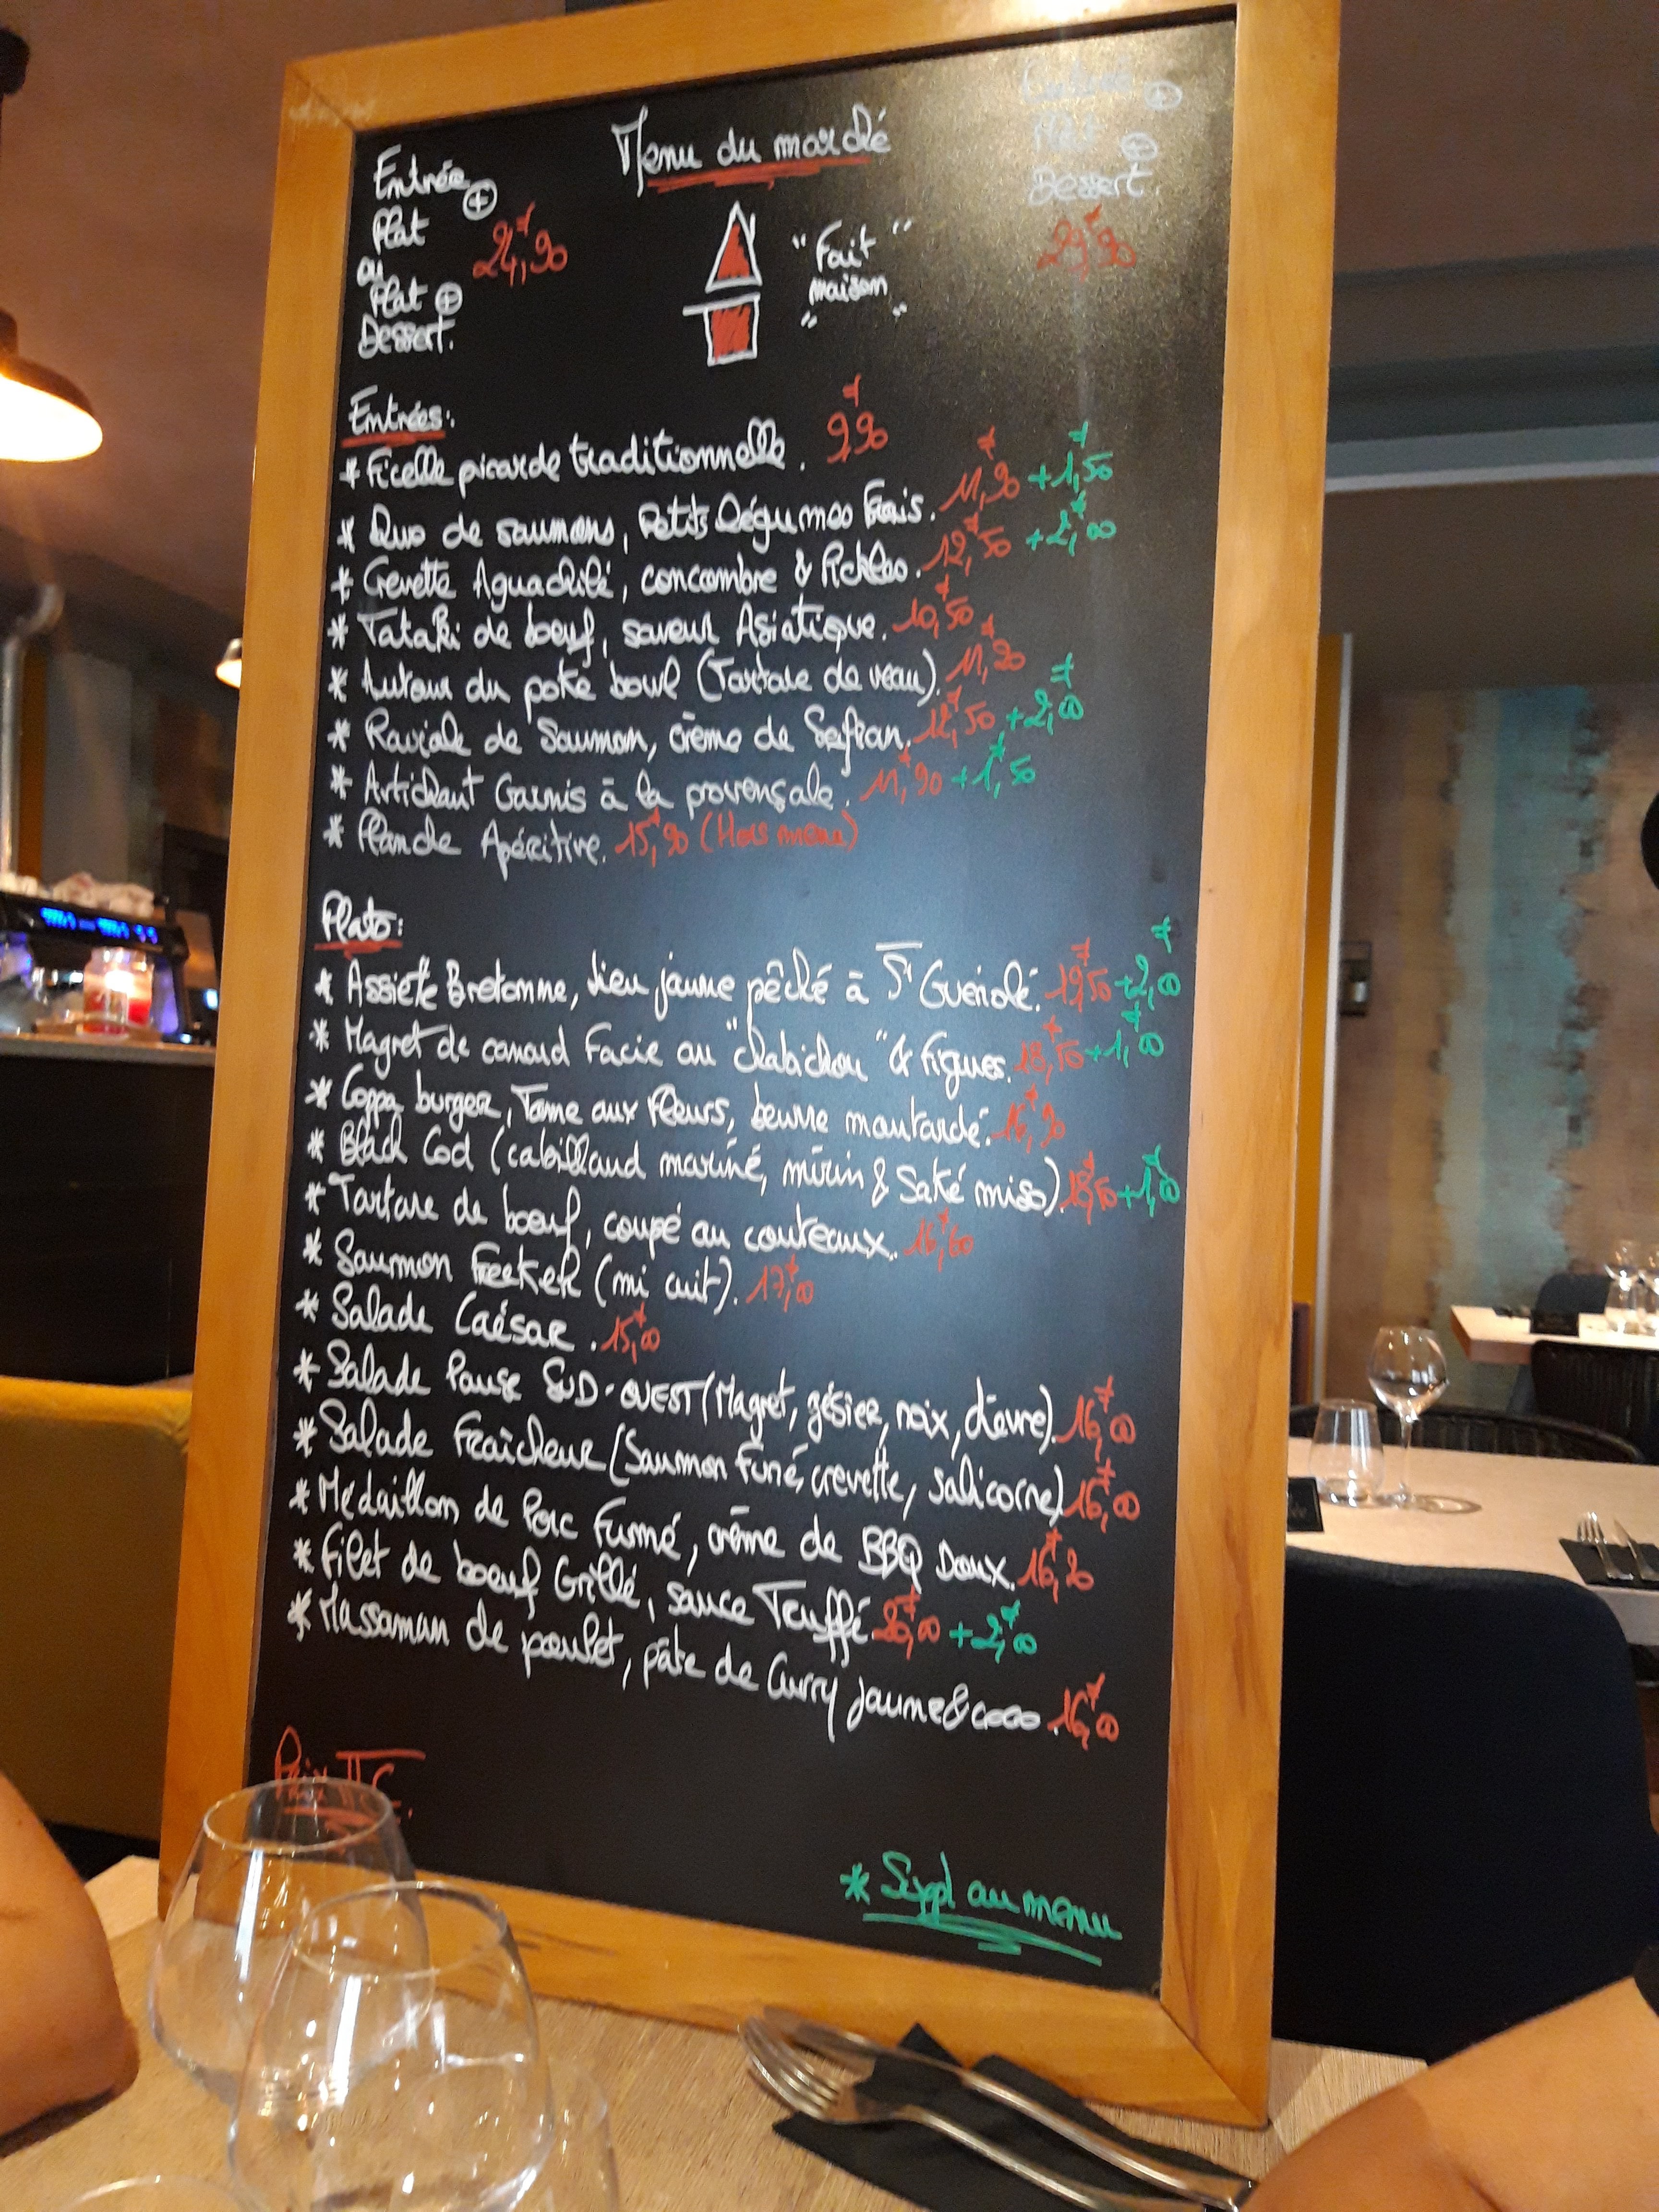 Menu du marché
Entrée ⊕
Plat
ou
Plat ⊕
Dessert.
24,90
"Fait
maison
"
Entrée ⊕
Plat ⊕
Dessert.
29,90
Entrées:
* Ficelle picarde traditionnelle. 9,90
* Duo de saumons, Petits Légumes Frais. 11,90 +1,50
* Crevette Aguachilé, concombre & Pickles. 12,50 +2,00
* Tataki de boeuf, saveur Asiatique. 10,50
* Autour du poke bowl (Tartare de veau). 11,20
* Raviole de Saumon, crème de Safran. 12,50 +2,00
* Artichaut Garnis à la provençale. 11,90 +1,50
* Planche Apéritive. 15,90 (Hors menu)
Plats:
* Assiette Bretonne, lieu jaune pêché à St Guénolé. 19,50 +2,00
* Magret de canard Farcie au "chabichou" & Figues. 18,50 +1,00
* Coppa burger, Tome aux Fleurs, beurre moutardé. 14,90
* Black Cod (cabillaud mariné, mirin & Saké miso). 18,50 +1,00
* Tartare de boeuf, coupé au couteaux. 16,60
* Saumon Freeker (mi cuit). 17,00
* Salade Caésar. 15,00
* Salade Pause SUD-OUEST (Magret, gésier, noix, chèvre). 16,00
* Salade Fraîcheur (Saumon Fumé, crevette, salicorne) 16,00
* Médaillon de Porc Fumé, crème de BBQ Doux. 16,20
* Filet de boeuf Grillé, sauce Truffé. 20,00 +2,00
* Massaman de poulet, pâte de Curry jaune & coco. 16,00
Prix TTC.
* Suppl au menu